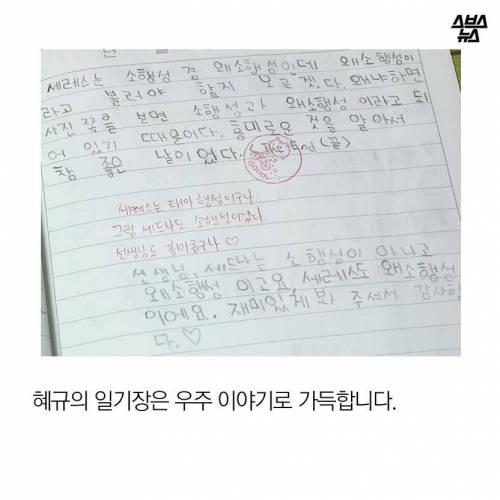 스브스
뉴스
세레스는 소행성 겸 왜소행성인데 왜소행성이
라고 불러야 할지 모르겠다. 왜냐하면
사진 쪽을 보면 소행성과 왜소행성 이라고 되
어 있기 때문이다. 흥미로운 것을 알아서
참 좋은 날이었다. <끝>
세레스는 태아 행성이구나
그럼 세드나도 소행성이겠다
선생님도 흥미롭구나 ♡
선생님, 세드나는 소행성이 아니고
왜소행성 이고요, 세레스도 왜소행성
이에요. 재미있게 봐 주셔서 감사합니
다.♡
혜규의 일기장은 우주 이야기로 가득합니다.